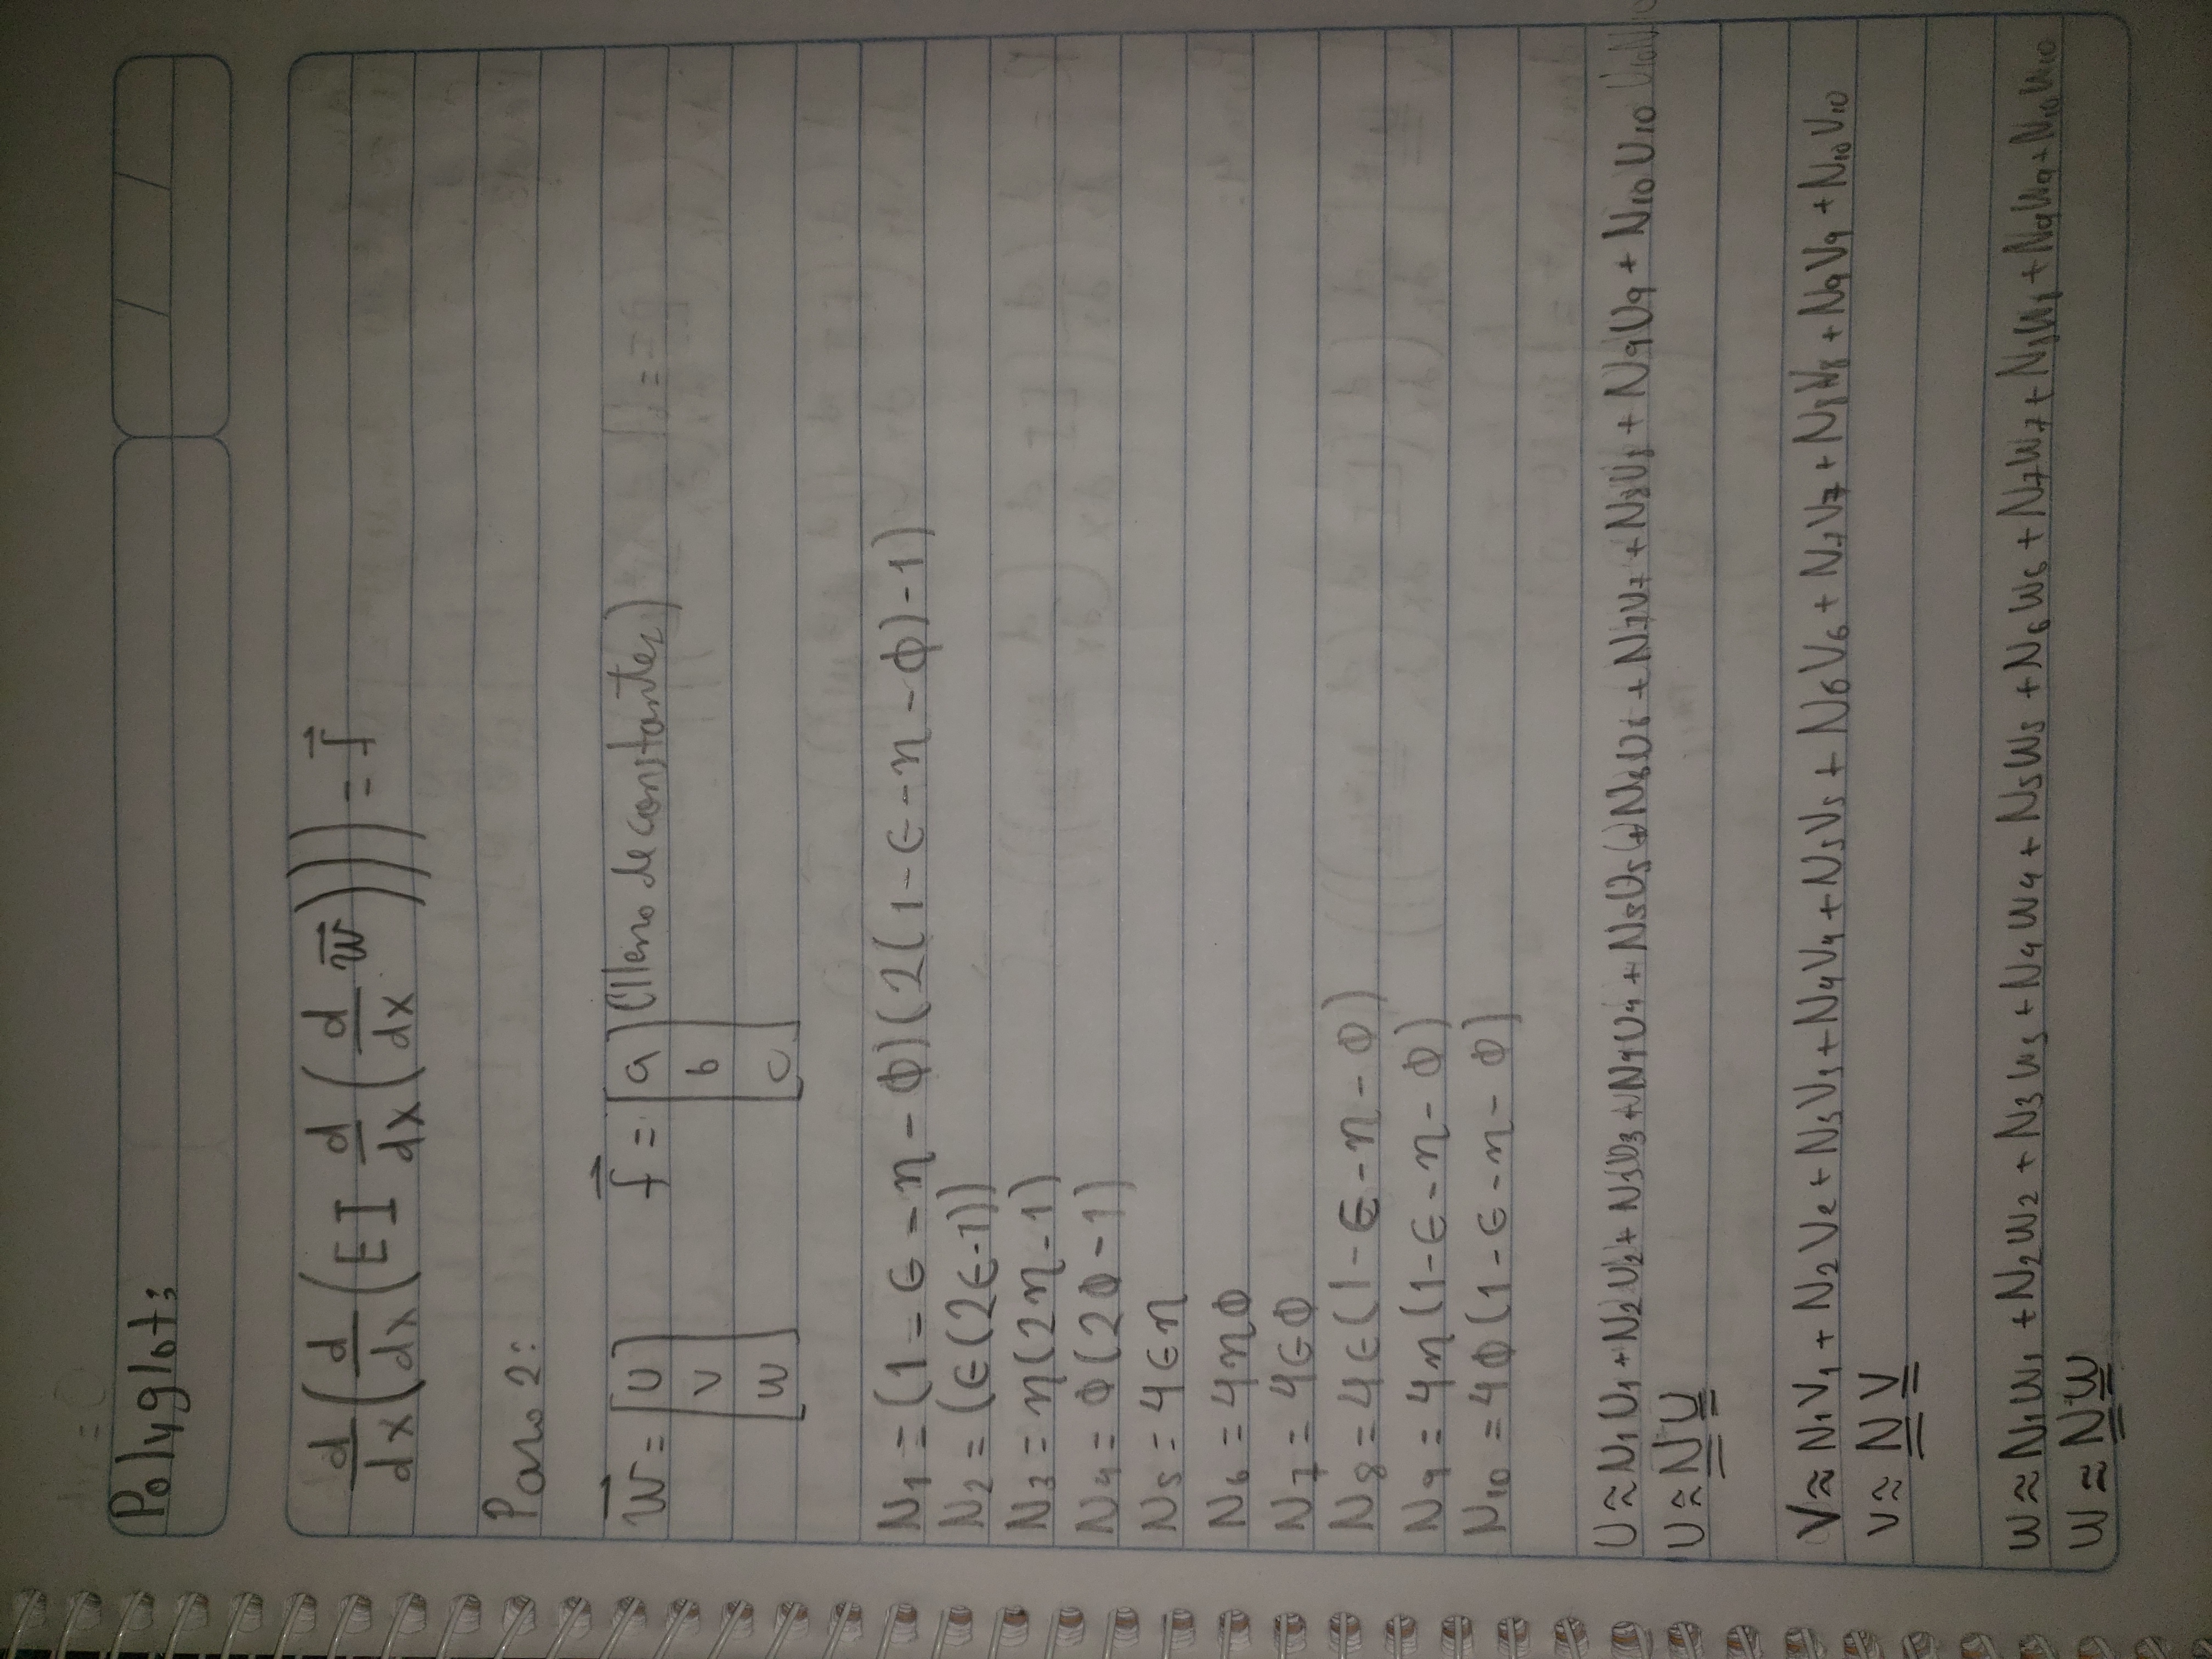 Polyglot:
d/dx(d/dx(EI d/dx(d/dx w⃗))) = f⃗
Paso 2:
w⃗ = [U V W] f⃗ = [a b c] (lleno de constantes)
N₁ = (1-ϵ-η-ϕ)(2(1-ϵ-η-ϕ)-1)
N₂ = (ϵ(2ϵ-1))
N₃ = η(2η-1)
N₄ = ϕ(2ϕ-1)
N₅ = 4ϵη
N₆ = 4ηϕ
N₇ = 4ϵϕ
N₈ = 4ϵ(1-ϵ-η-ϕ)
N₉ = 4η(1-ϵ-η-ϕ)
N₁₀ = 4ϕ(1-ϵ-η-ϕ)
U ≈ N₁U₁ + N₂U₂ + N₃U₃ + N₄U₄ + N₅U₅ + N₆U₆ + N₇U₇ + N₈U₈ + N₉U₉ + N₁₀U₁₀
U ≈ N U
V ≈ N₁V₁ + N₂V₂ + N₃V₃ + N₄V₄ + N₅V₅ + N₆V₆ + N₇V₇ + N₈V₈ + N₉V₉ + N₁₀V₁₀
V ≈ N V
W ≈ N₁W₁ + N₂W₂ + N₃W₃ + N₄W₄ + N₅W₅ + N₆W₆ + N₇W₇ + N₈W₈ + N₉W₉ + N₁₀W₁₀
W ≈ N W